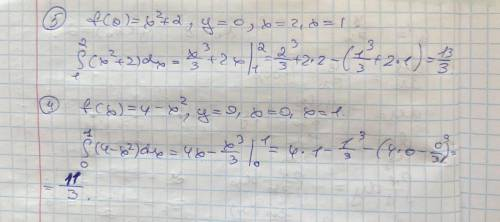 ⑤ f(x)=x²+2, y=0, x=2, x=1.
∫₁²(x²+2)dx = x³/3+2x|₁² = 2³/3+2·2-(1³/3+2·1)=13/3
④ f(x)=4-x², y=0, x=0, x=1.
∫₀¹(4-x²)dx=4x-x³/3|₀¹=4·1-1³/3-(4·0-0³/3)=
=11/3.